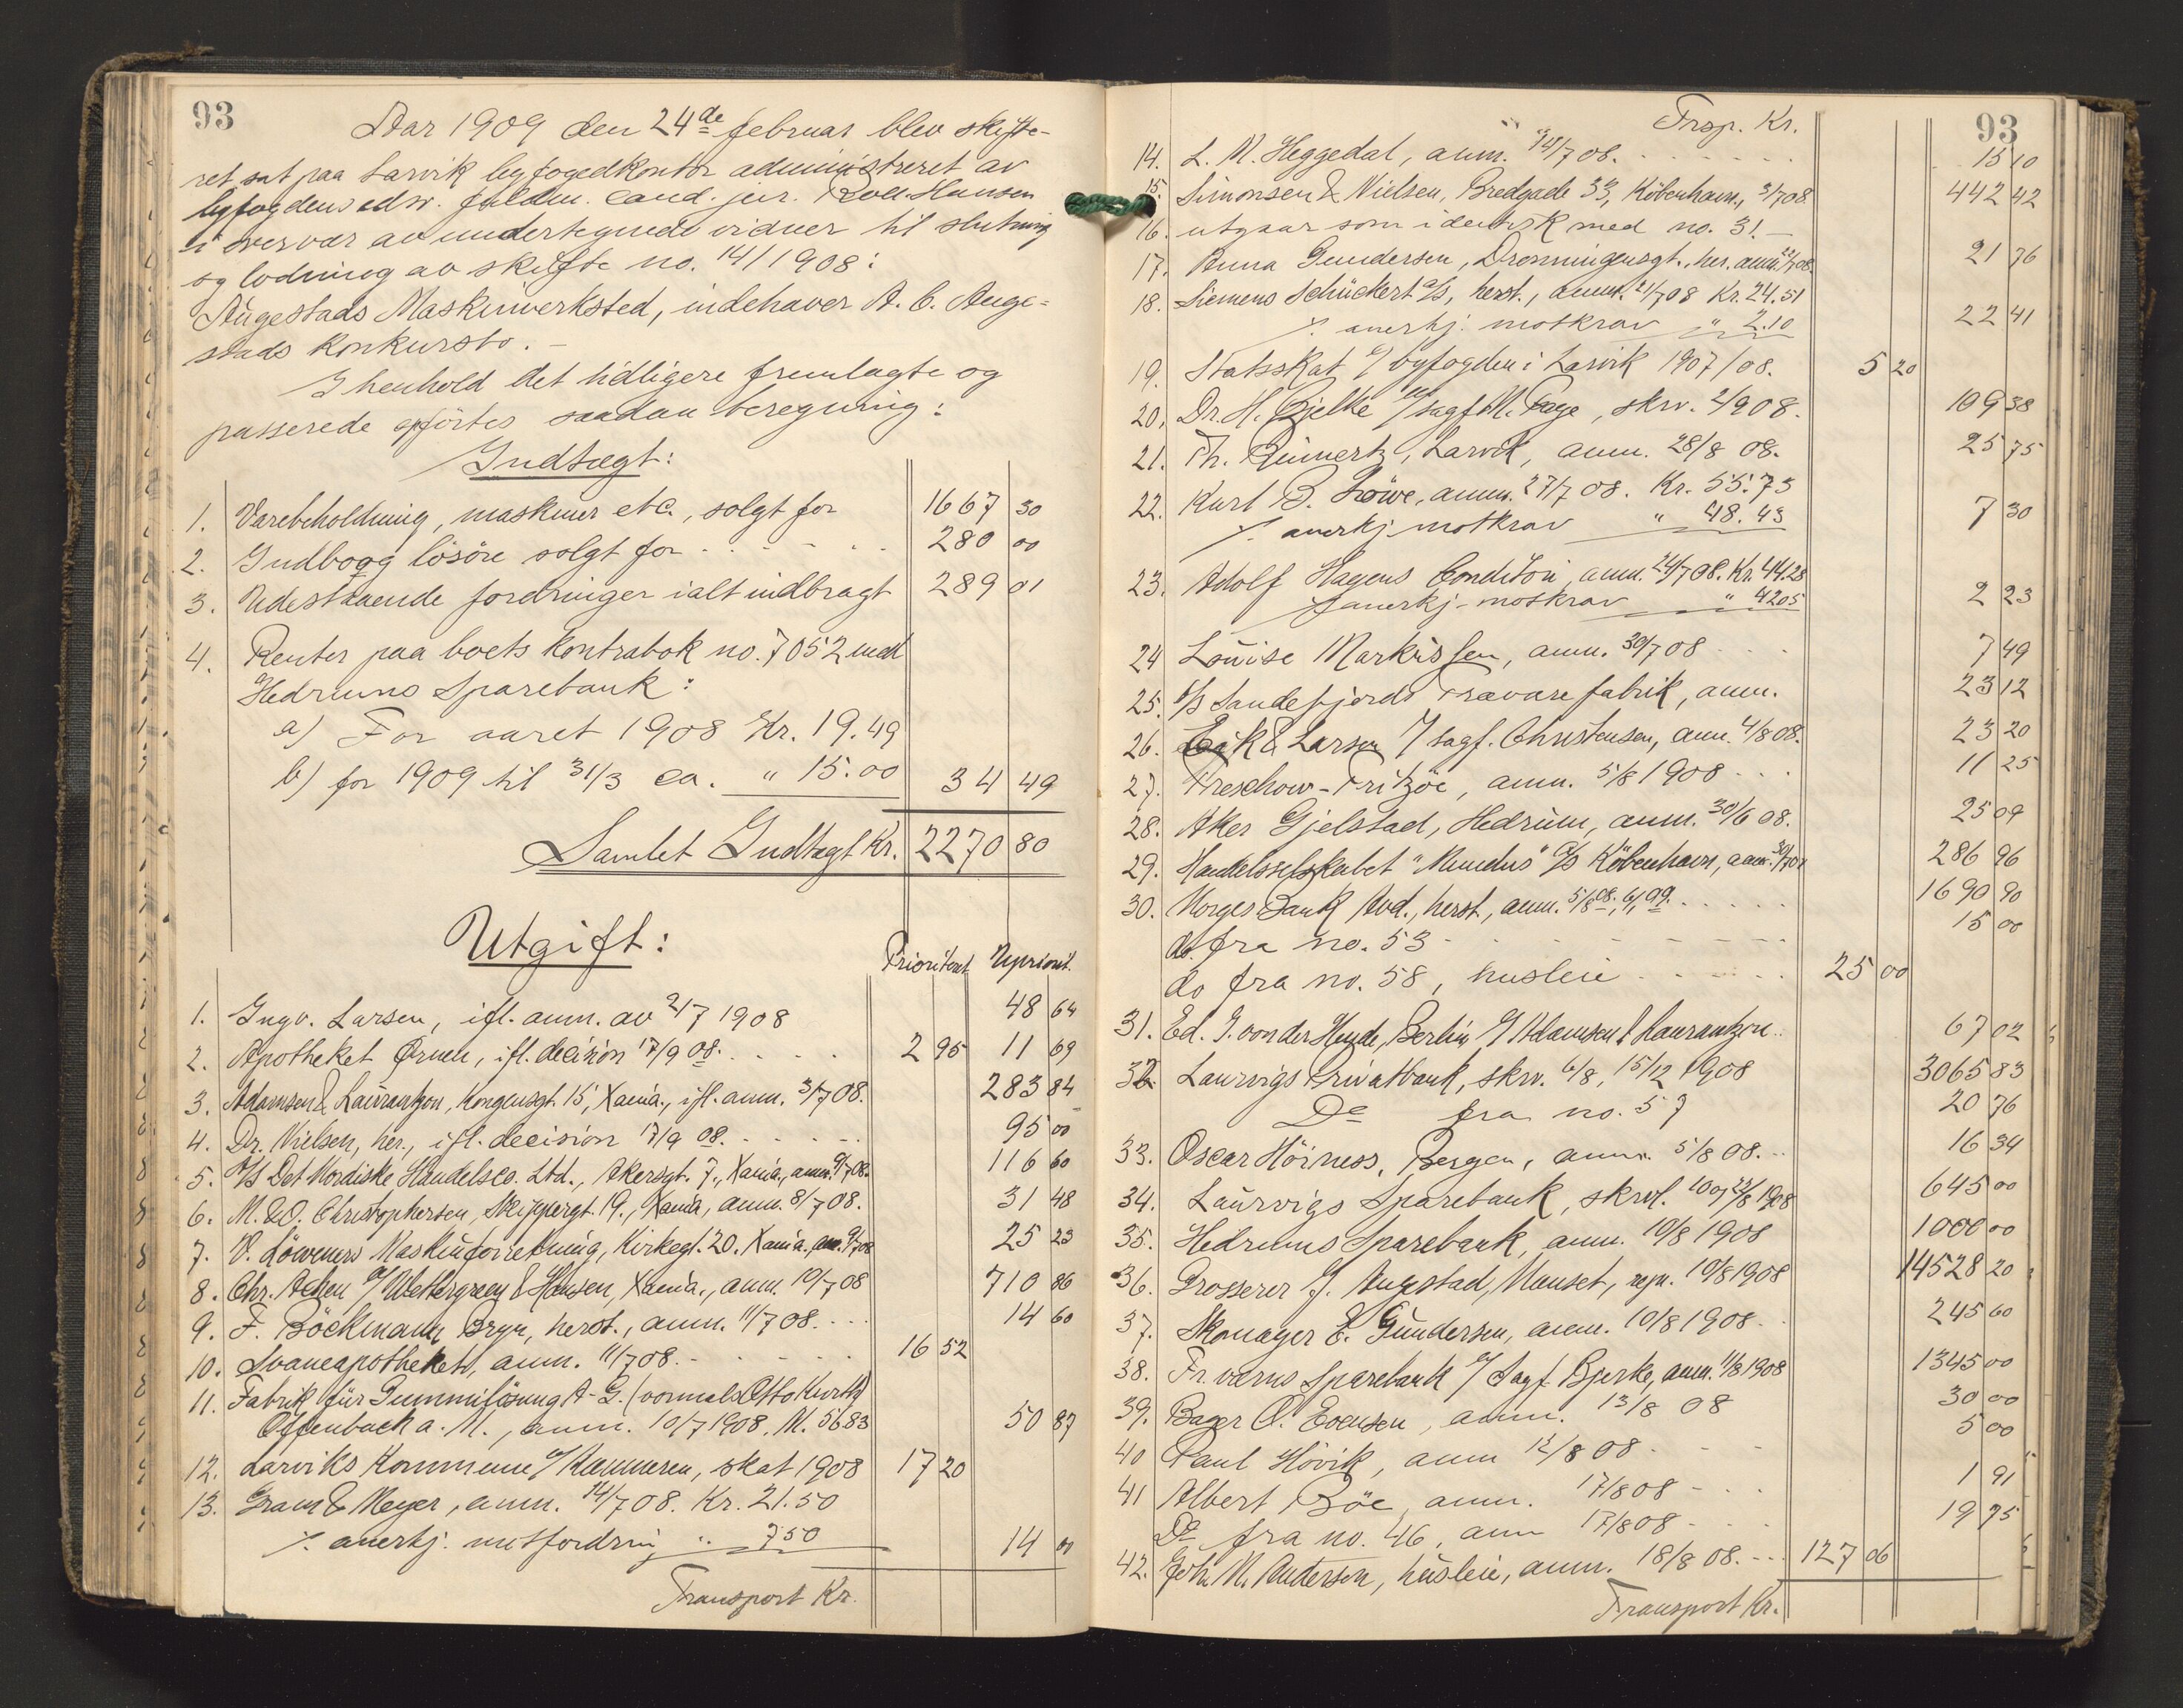 93
Aar 1909 den 24de februar blev skifte-
ret sat paa Larvik byfogedkontor administreret av
byfogdens edsv. fuldm. cand. jur. Rolf Hansen
i overvær av undertegnede vidner til slutning
og lodning av skifte no. 14/1908:
Augestads Maskinverksted, indehaver A. C. Auge-
stads konkursbo. –
I henhold det tidligere fremlagte og
passerede opförtes saadan beregning:
Indtægt:
1. Varebeholdning, maskiner etc., solgt for 1667 30
2. Indbo og lösöre solgt for 280 00
3. Udestaaende fordringer ialt indbragt 289 01
4. Renter paa boets kontrabok no. 7052 med
Hedrums Sparebank:
a) For aaret 1908 Kr. 19.49
b) for 1909 til 31/3 ca. " 15.00 34 49
Samlet Indtægt Kr. 2270 80
Utgift:
Prioritert Upriorit.
1. Ingv. Larsen, ifl. anm. av 2/7 1908 48 64
2. Apotheket Ørnen, ifl. decision 17/9 08. 2 95 11 69
3. Adamsen & Laurantzon, Kongensgt. 15, Xania., ifl. anm. 3/7 08. 283 84
4. Dr. Nielsen, her., ifl. decision 17/9 08. 95 00
5. A/S Det Nordiske Handelsco. Ltd., Akersgt. 7., Xania., anm. 9/7 08. 116 60
6. M. & O. Christophersen, Skippergt. 19., Xania, anm. 8/7 08. 31 48
7. V. Löweners Maskinforretning, Kirkegt. 20. Xania., anm. 9/7 08 25 23
8. Chr. Achen v/ Wettergreen & Hansen, Xania., anm. 10/7 08 710 86
9. F. Böckmann Bryn, herst., anm. 11/7 08. 14 60
10. Svaneapotheket, anm. 11/7 08. 16 52
11. Fabrik für Gummilösung A-G. (vormals Otto Kurth)
Offenbach a. M., anm. 10/7 1908. M. 56.83 50 87
12. Larviks Kommune v/ Kæmneren, skat 1908 17 20
13. Gram & Meyer, anm. 14/7 08. Kr. 21.50
÷ anerkj. motfordring " 7.50 14 00
Transport Kr.
93
Trsp. Kr.
14. L. M. Heggedal, anm. 14/7 08. 15 10
15. Simonsen & Nielsen, Bredgade 33, Köbenhavn, 3/7 08 442 42
16. utgaar som identisk med no. 31. –
17. Anna Gundersen, Dronningensgt., her. anm. 22/7 08. 21 76
18. Siemens Schückert A/S, herst., anm. 21/7 08 Kr. 24.51
÷ anerkj. motkrav " 2.10 22 41
19. Statsskat v/ byfogden i Larvik 1907/08. 5 20
20. Dr. H. Bjelke v/ sagf. M. Fage, skrv. 2/9 08. 109 38
21. Th. Reinertz, Larvik, anm. 28/8 08. 25 75
22. Kurl B. Löwe, anm. 27/7 08. Kr. 55.73
÷ anerkj. motkrav " 48.43 7 30
23. Adolf Hagens Conditori, anm. 24/7 08. Kr. 44.28
÷ anerkj. motkrav " 42.05 2 23
24 Louise Markussen, anm. 30/7 08 7 49
25. A/S Sandefjords Trævarefabrik, anm. 23 12
26. Eek & Larsen v/ sagf. Christensen, anm. 4/8 08. 23 20
27. Treschow-Fritzöe, anm. 5/8 1908 11 25
28. Aker Gjelstad, Hedrum, anm. 30/6 08. 25 09
29. Handelsselskabet "Mundus" A/S Köbenhavn, anm. 30/7 08 286 96
30. Norges Bank Avd., herst., anm. 5/8 08. 6/1 09. 1690 90
do. fra no. 53 15 00
do fra no. 58, husleie 25 00
31. Ed. J. von der Heyde, Berlin v/ Adamsen & Laurantzon 67 02
32. Laurvigs Privatbank, skrv. 6/8, 15/12 1908 3065 83
Do fra no. 57 20 76
33. Oscar Höiness, Bergen, anm. 5/8 08. 16 34
34. Laurvigs Sparebank, skrvl. 10 og 22/8 1908 645 00
35. Hedrums Sparebank, anm. 10/8 1908 1000 00
36. Grosserer J. Augestad, Nanset, rgn. 10/8 1908 14528 20
37. Skomager E. Gundersen, anm. 10/8 1908 245 60
38. Fr.værns Sparebank v/ Sagf. Bjerke, anm. 11/8 1908 1345 00
39. Bager O. Evensen, anm. 13/8 08 30 00
40 Paul Hövik, anm 12/8 08 5 00
41 Albert Böe, anm. 17/8 08 1 91
Do fra no. 46, anm 17/8 08 19 75
42. Joh. M. Andersen, husleie, anm. 18/8 08. 127 06
Transport Kr.